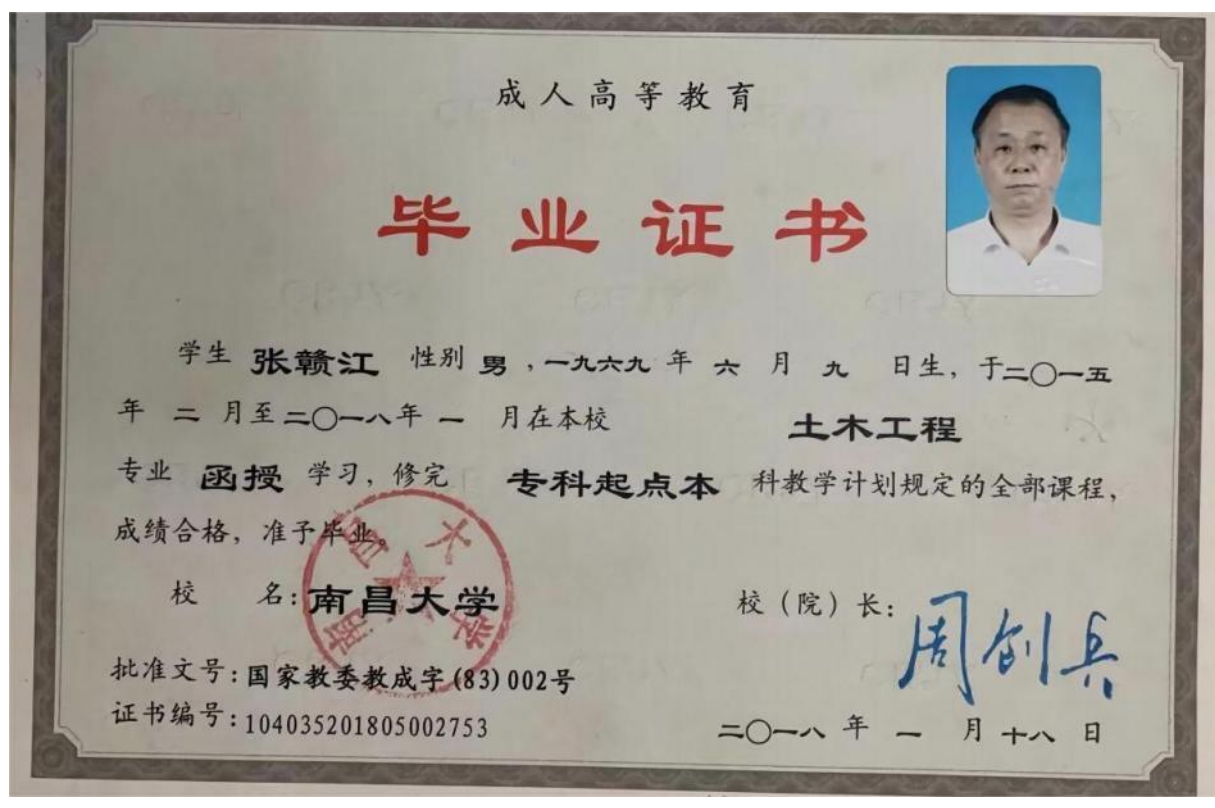 成人高等教育
毕业证书
学生 张赣江 性别 男，一九六九 年 六 月 九 日生，于二〇一五
年 二 月至二〇一八年 一 月在本校 土木工程
专业 函授 学习，修完 专科起点本 科教学计划规定的全部课程，
成绩合格，准予毕业。
校 名：南昌大学
南昌大学
校（院）长：周创兵
批准文号：国家教委教成字(83)002号
证书编号：104035201805002753
二〇一八 年 一 月 十八 日